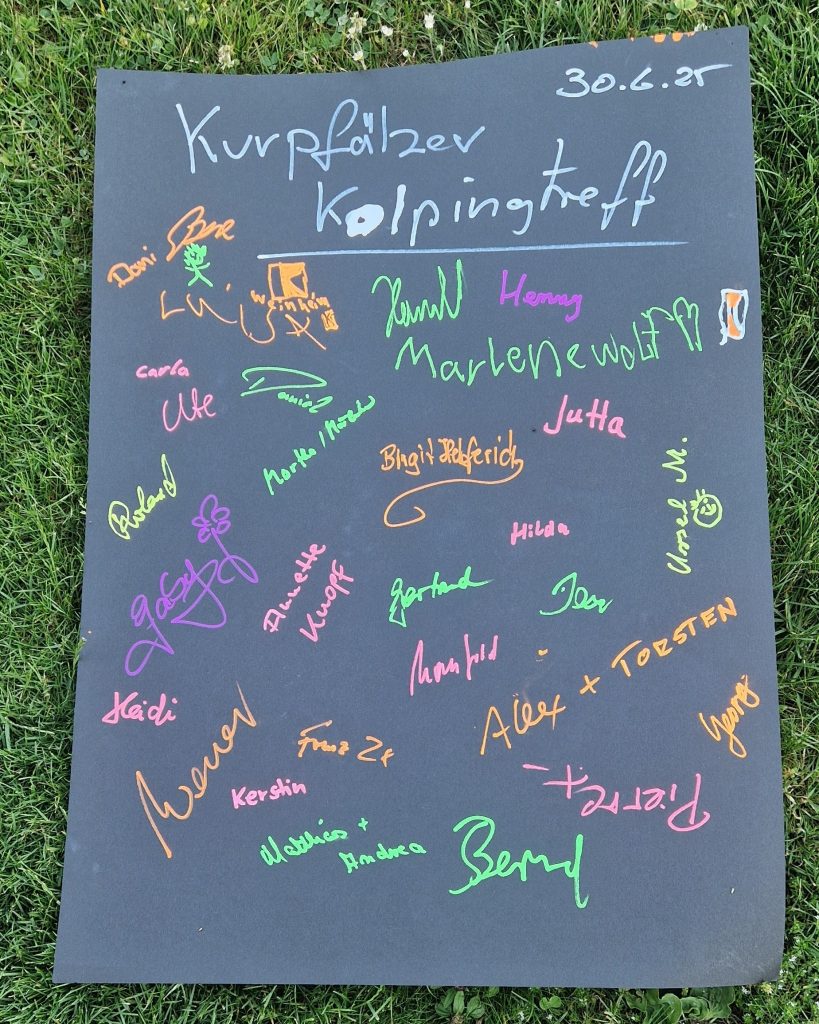 30.6.25
Kurpfälzer
Kolpingtreff
Dani
Luisa
Weinheim
Henny
Marlene Wolf
Carla
Ute
Daniel
Jutta
Birgit Helferich
Roland
Ursel M.
Hilda
Gaby
Annette
Knopf
Gertrud
Manfred
Alex + TORSTEN
Heidi
Georg
Werner
Franz
Kerstin
Pierre
Matthias +
Andrea
Bernd